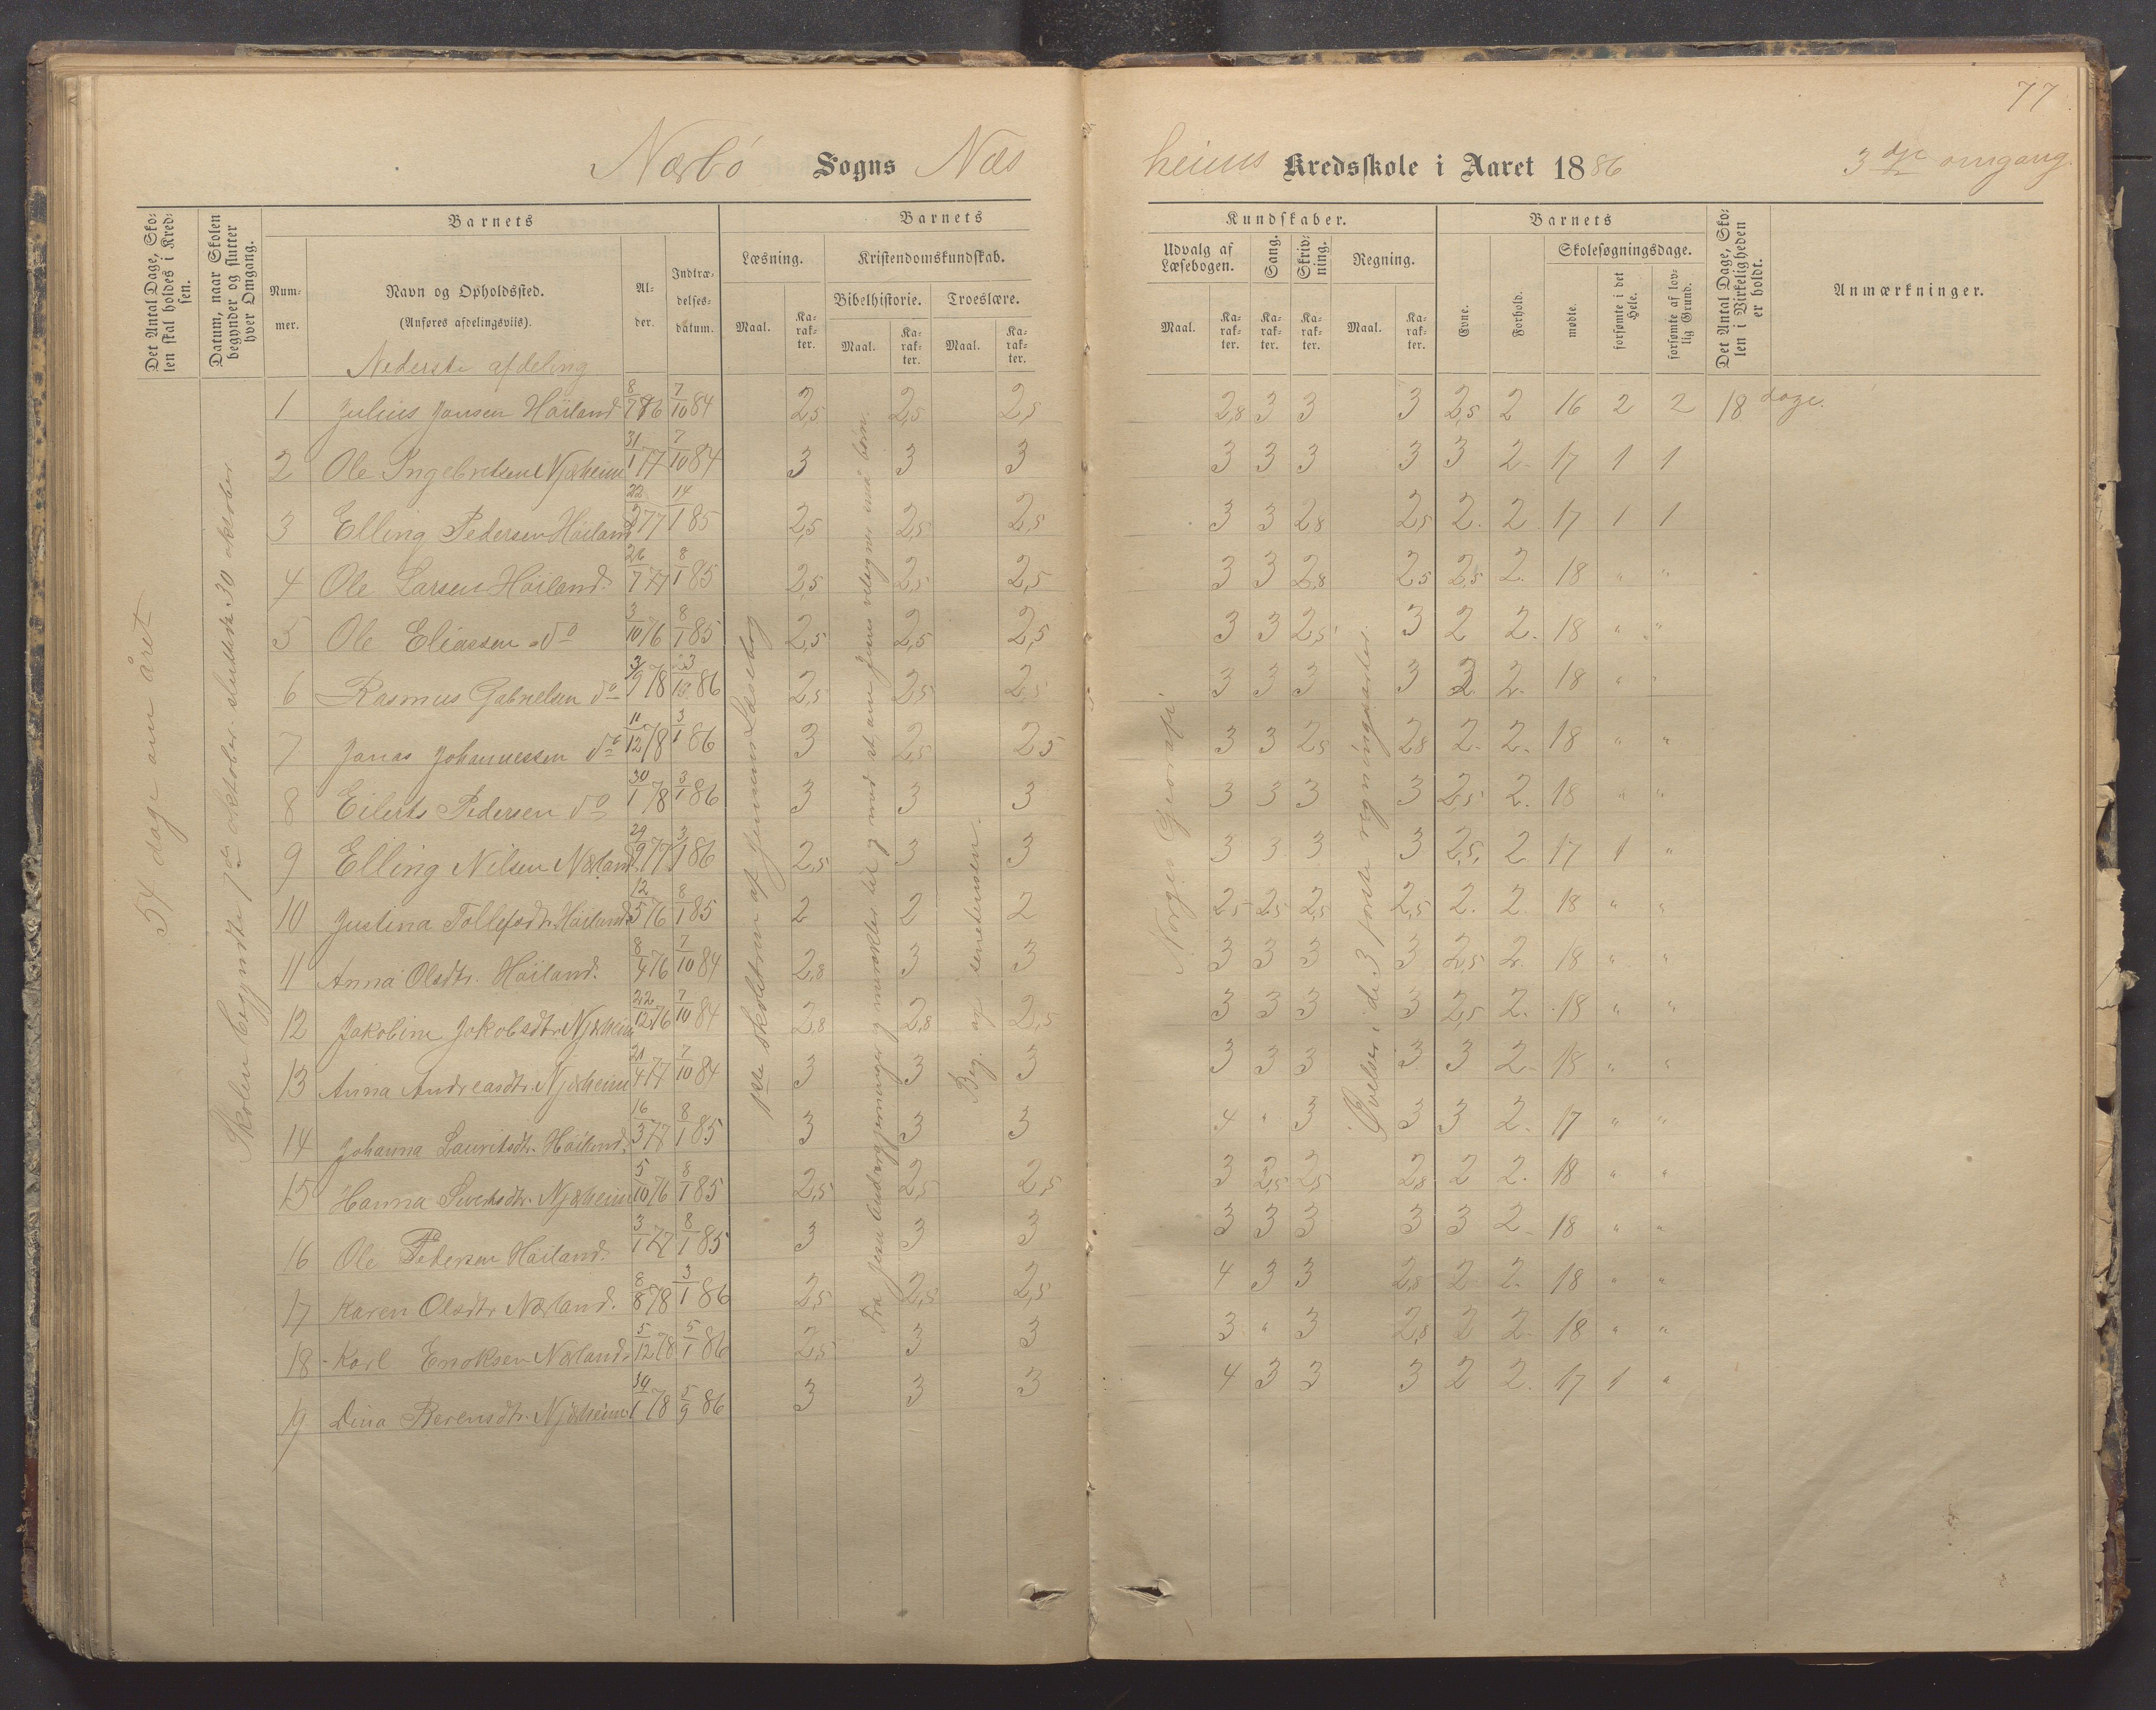 77
Nærbö Sogns Næs
heims Kredsskole i Aaret 1886 3 dje omgang.
Det Antal Dage, Sko-
len skal holdes i Kred-
sen.
Datum, naar Skolen
begynder og slutter
hver Omgang.
Barnets
Num-
mer.
Navn og Opholdssted.
(Anføres afdelingsviis).
Al-
der.
Indtræ-
delses-
datum.
Barnets
Læsning.
Kristendomskundskab.
Bibelhistorie.
Troeslære.
Maal.
Ka-
rak-
ter.
Maal.
Ka-
rak-
ter.
Maal.
Ka-
rak-
ter.
Kundskaber.
Udvalg af
Læsebogen.
Sang.
Skriv-
ning.
Regning.
Maal.
Ka-
rak-
ter.
Ka-
rak-
ter.
Ka-
rak-
ter.
Maal.
Ka-
rak-
ter.
Barnets
Evne.
Forhold.
Skolesøgningsdage.
mødte.
forsømte i det
Hele.
forsømte af lov-
lig Grund.
Det Antal Dage, Sko-
len i Virkeligheden
er holdt.
Anmærkninger.
Nederste afdeling
54 dage om året
Skolen begyndte 7de oktober. sluttede 30 oktober
1ste skoletrin af Jensens Læsebog
Beg. af senetensen.
Norges Geografi
Øvelser i de 3 første regningsarter
1 Julius Jansen Höiland 8/7 76 7/10 84 2,5 2,5 2,5 2,8 3 3 3 2,5 2 16 2 2 18 dage.
2 Ole Ingebretsen Njærheim 31/1 77 7/10 84 3 3 3 3 3 3 3 3 2 17 1 1
3 Elling Pedersen Höiland 22/2 77 14/1 85 2,5 2,5 2,5 3 3 2,8 2,5 2 2 17 1 1
4 Ole Larsen Höiland. 26/7 77 8/1 85 2,5 2,5 2,5 3 3 2,8 2,5 2,5 2. 18 " "
5 Ole Eliassen do 3/10 76 8/1 85 2,5 2,5 2,5 3 3 2,5 3 2 2. 18 " "
6 Rasmus Gabrielsen do 3/9 78 23/10 86 2,5 2,5 2,5 3 3 3 3 3 2. 18 " "
7 Jonas Johannessen do 11/12 78 3/1 86 3 2,5 2,5 3 3 2,5 2,8 2. 2. 18 " "
8 Eilerts Pedersen do 30/1 78 3/1 86 3 3 3 3 3 3 3 2,5 2. 18 " "
9 Elling Nilsen Nærland. 29/9 77 3/1 86 2,5 3 3 3 3 3 3 2,5. 2 17 1 "
10 Justina Tollefsdtr. Höiland 12/5 76 8/1 85 2 2 2 2,5 2,5 2,5 2,5 2. 2. 18 " "
11 Anna Olsdtr. Höiland. 8/4 76 7/10 84 2,8 3 3 3 3 3 3 2,5 2. 18 " "
12 Jakobine Jakobsdtr. Njærheim 22/12 76 7/10 84 2,8 2,8 2,5 3 3 3 3 2,5 2. 18 " "
13 Anna Andreasdtr. Njærheim 21/4 77 7/10 84 3 3 3 3 3 3 3 3 2. 18 " "
14 Johanna Lauritsdtr. Höiland. 16/3 77 8/1 85 3 3 3 4 " 3 3 3 2. 17 " "
15 Hanna Sivertsdtr. Njærheim 5/10 76 8/1 85 2,5 2,5 2,5 3 2,5 2,5 2,8 2 2. 18 " "
16 Ole Pedersen Höiland. 3/1 77 8/1 85 3 3 3 3 3 3 3 3 2. 18 " "
17 Karen Olsdtr Nærland. 8/8 78 3/1 86 2,5 2,5 2,5 4 3 3 2,8 2 2. 18 " "
18 Karl Enoksen Nærland. 5/12 78 5/1 86 2,5 3 3 3 " 3 2,8 2 2. 18 " "
19 Dina Berensdtr. Njærheim. 1 78 5/9 86 3 3 3 4 3 3 3 2 2. 17 1 "